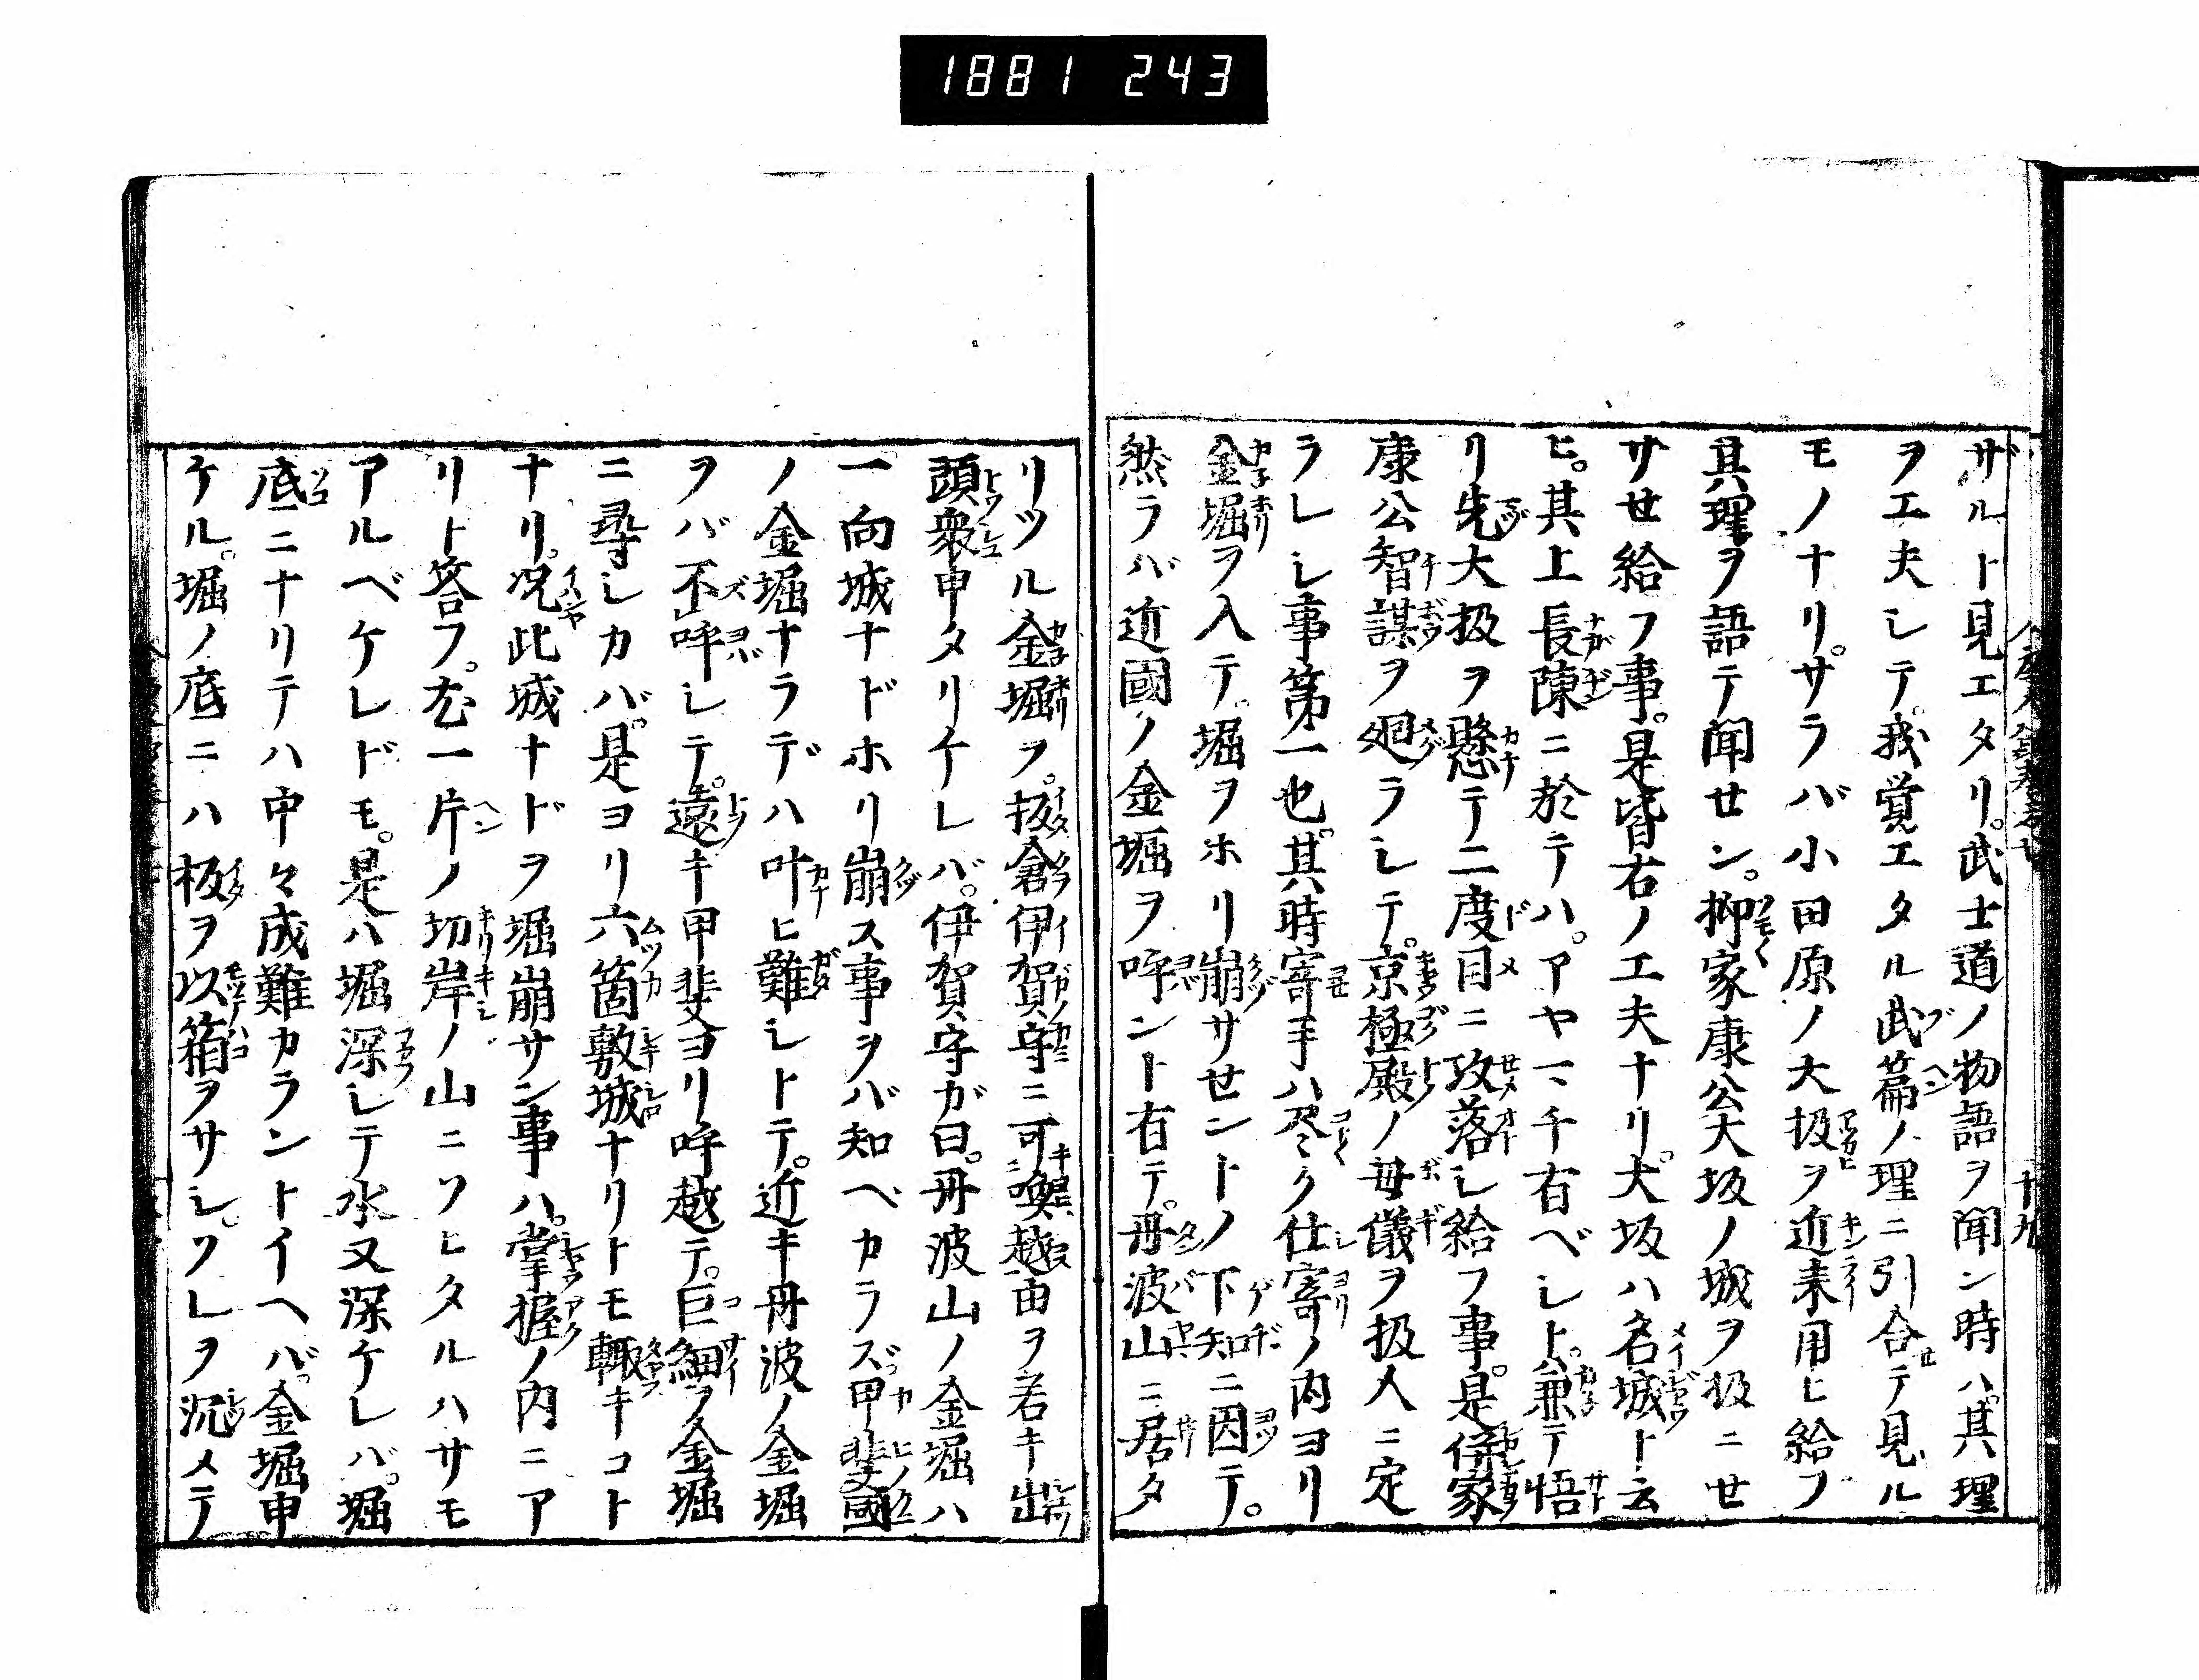 1881 243
十九
ザルト見エタリ。武士道ノ物語ヲ聞ン時ハ。其理
ヲエ夫シテ。我覚エタル武篇ノ理ニ引合セテ見ル
モノナリ。サラバ小田原ノ大扱ヲ近来用ヒ給フ
其理ヲ語テ聞せン。抑家康公大坂ノ城ヲ扱ニせ
サせ給フ事。是皆右ノ工夫ナリ。大坂ハ名城ト云
ヒ。其上長陳ニ於テハ。アヤマチ有ベシト。兼テ悟
リ先大扱ヲ懸テ二度目ニ攻落シ給フ事。是併家
康公智謀ヲ廻ラシテ。京極殿ノ母儀ヲ扱人ニ定
ラレシ事第一也。其時寄手ハ尽ク仕寄ノ内ヨリ
金堀ヲ入テ。堀ヲホリ崩サせントノ下知ニ因テ。
然ラバ近國ノ金堀ヲ呼ント有テ。丹波山ニ居タ
リツル金堀ヲ。板倉伊賀守ニ可喚越由ヲ若キ出
頭衆申タリケレバ。伊賀守ガ曰。丹波山ノ金堀ハ
一向城ナドホリ崩ス事ヲバ知ベカラズ。甲斐國
ノ金堀ナラデハ叶ヒ難シトテ。近キ丹波ノ金堀
ヲバ不呼シテ。遠キ甲斐ヨリ呼越テ。巨細ヲ金堀
ニ尋シカバ。是ヨリ六箇敷城ナリトモ輙キコト
ナリ。况此城ナドヲ堀崩サン事ハ。掌握ノ内ニア
リト答フ。尤一片ノ切岸ノ山ニソヒタルハサモ
アルベケレドモ。是ハ堀深シテ水又深ケレバ。堀
底ニナリテハ中々成難カラントイヘバ。金堀申
ケル。堀ノ底ニハ板ヲ以箱ヲサシ。ソレヲ沉メテ